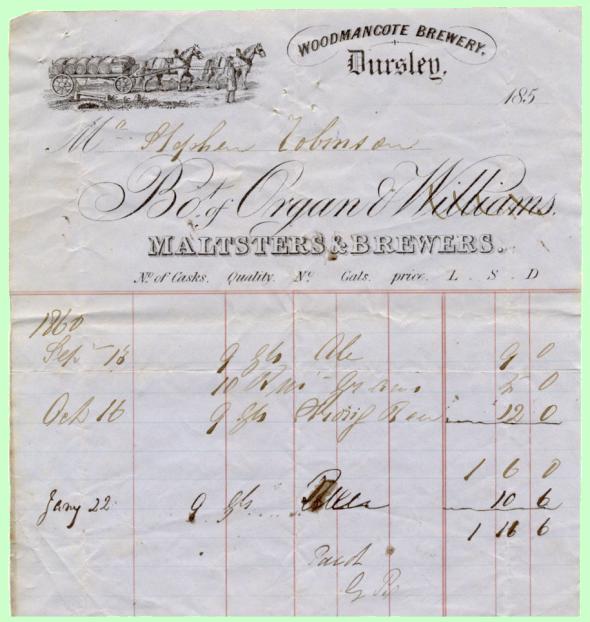 WOODMANCOTE BREWERY.
Dursley.
185
Mr Stephen Tobinson
Bot. of Organ & Williams.
MALTSTERS & BREWERS.
No. of Casks. Quality. No. Gals. price. L. S. D
1860
Sepr 13 9 gls Ale 9 0
10 Grains 5 0
Oct 16 9 gls Strong Beer 12 0
1 6 0
Jany 22 9 gls 10 6
1 16 6
Paid